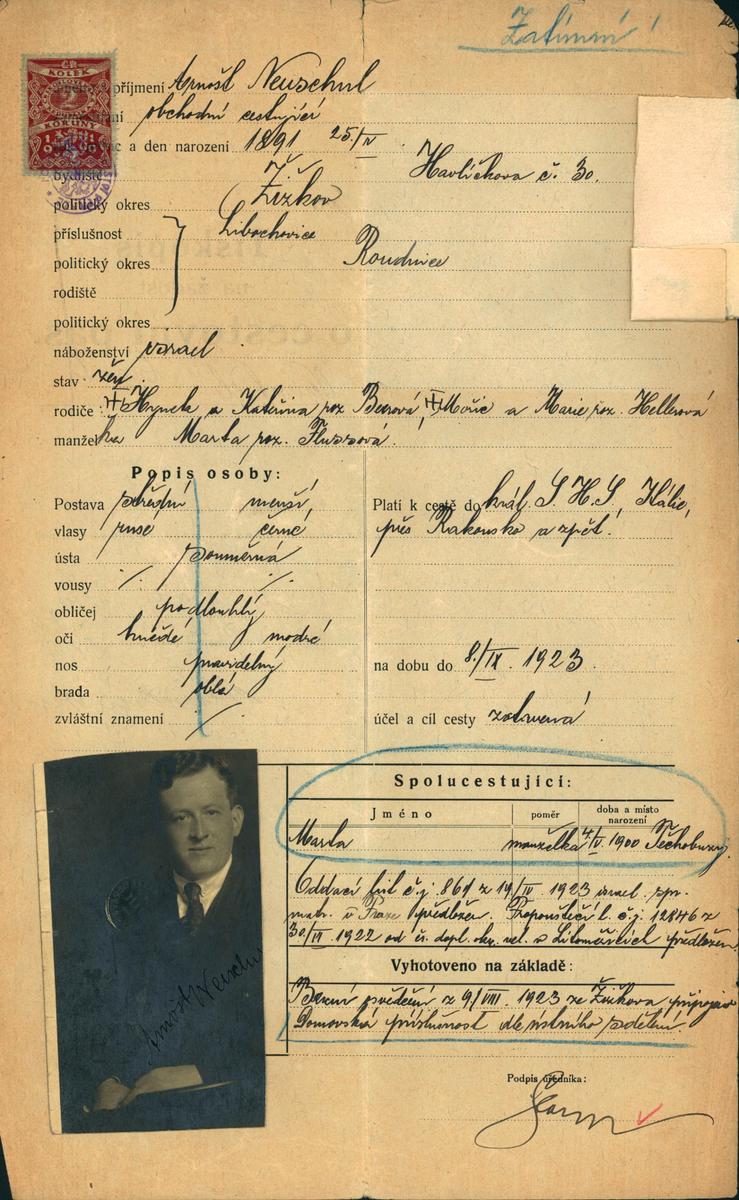 Zatímní!
ČR
KOLEK
KORUNY
příjmení Arnošt Neuschul
obchodní cestující
a den narození 1891 25/IV
bydliště Havlíčkova č. 30.
politický okres Žižkov
příslušnost Libochovice
politický okres Roudnice
rodiště
politický okres
náboženství israel
stav žen.
rodiče Hynek a Kateřina roz. Beerová, Mořic a Marie roz. Hellerová
manželka Marta roz. Flussová.
Popis osoby:
Postava střední menší,
vlasy rusé černé
ústa souměrná
vousy ·/. ·/.
obličej podlouhlý,
oči hnědé modré
nos pravidelný
brada oblá
zvláštní znamení ·/.
Platí k cestě do král. S. H. S., Itálie,
přes Rakousko a zpět.
na dobu do 8./IX. 1923.
účel a cíl cesty zotavená
Spolucestující:
Jméno poměr doba a místo narození
Marta manželka 4/V 1900 Těchobuzy.
Oddací list č.j. 861 z 19/IV 1923 israel. spr.
matr. v Praze předložen. Propouštěcí l. č.j. 12846 z
30/VI 1922 od čs. dopl. okr. vel. v Litoměřicích předložen.
Vyhotoveno na základě:
Berní osvědčení z 9/VIII. 1923 ze Žižkova připojeno
Domovská příslušnost dle ústního sdělení.
Arnošt Neuschul
Podpis úředníka: